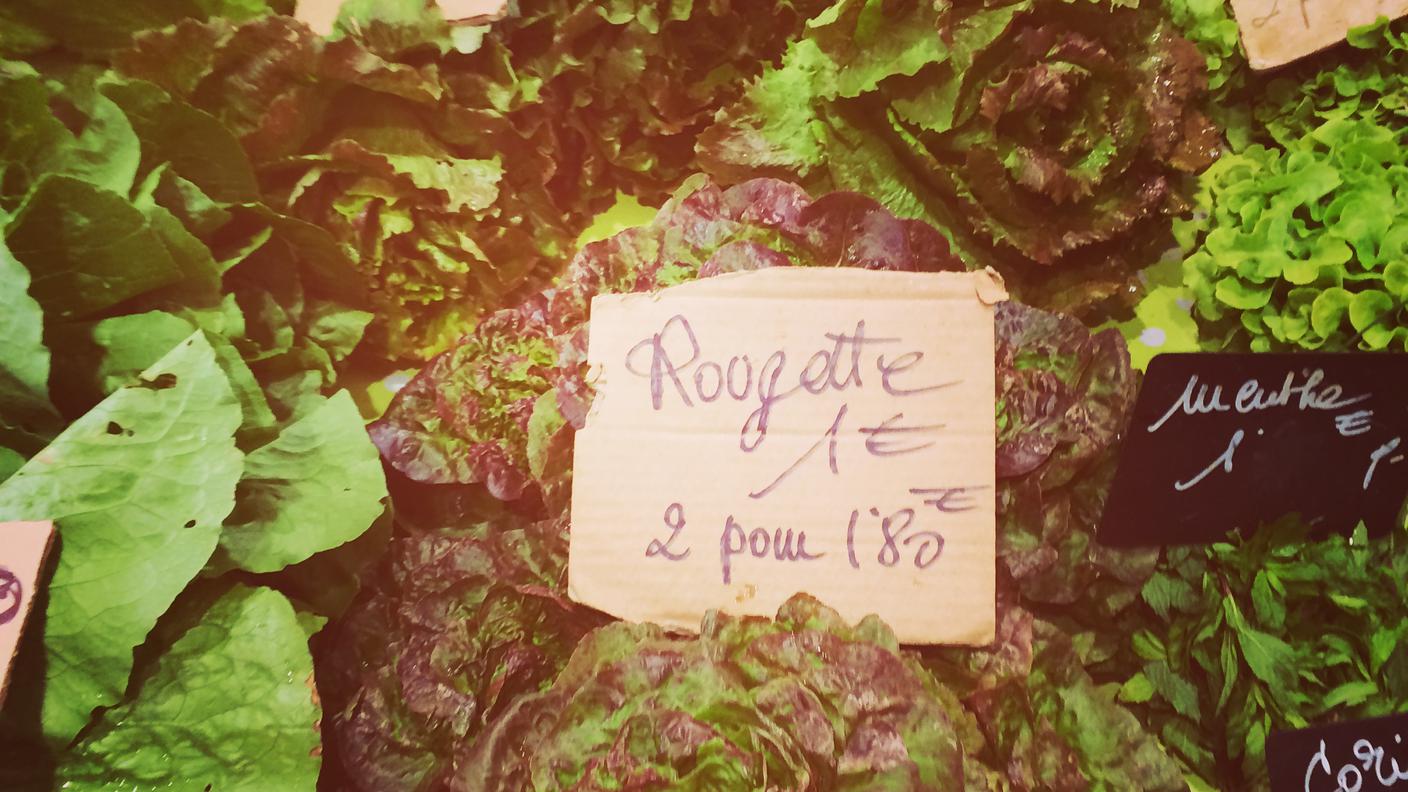 Rougette
1€
2 pour 1'80€
Menthe
1'€
Cori